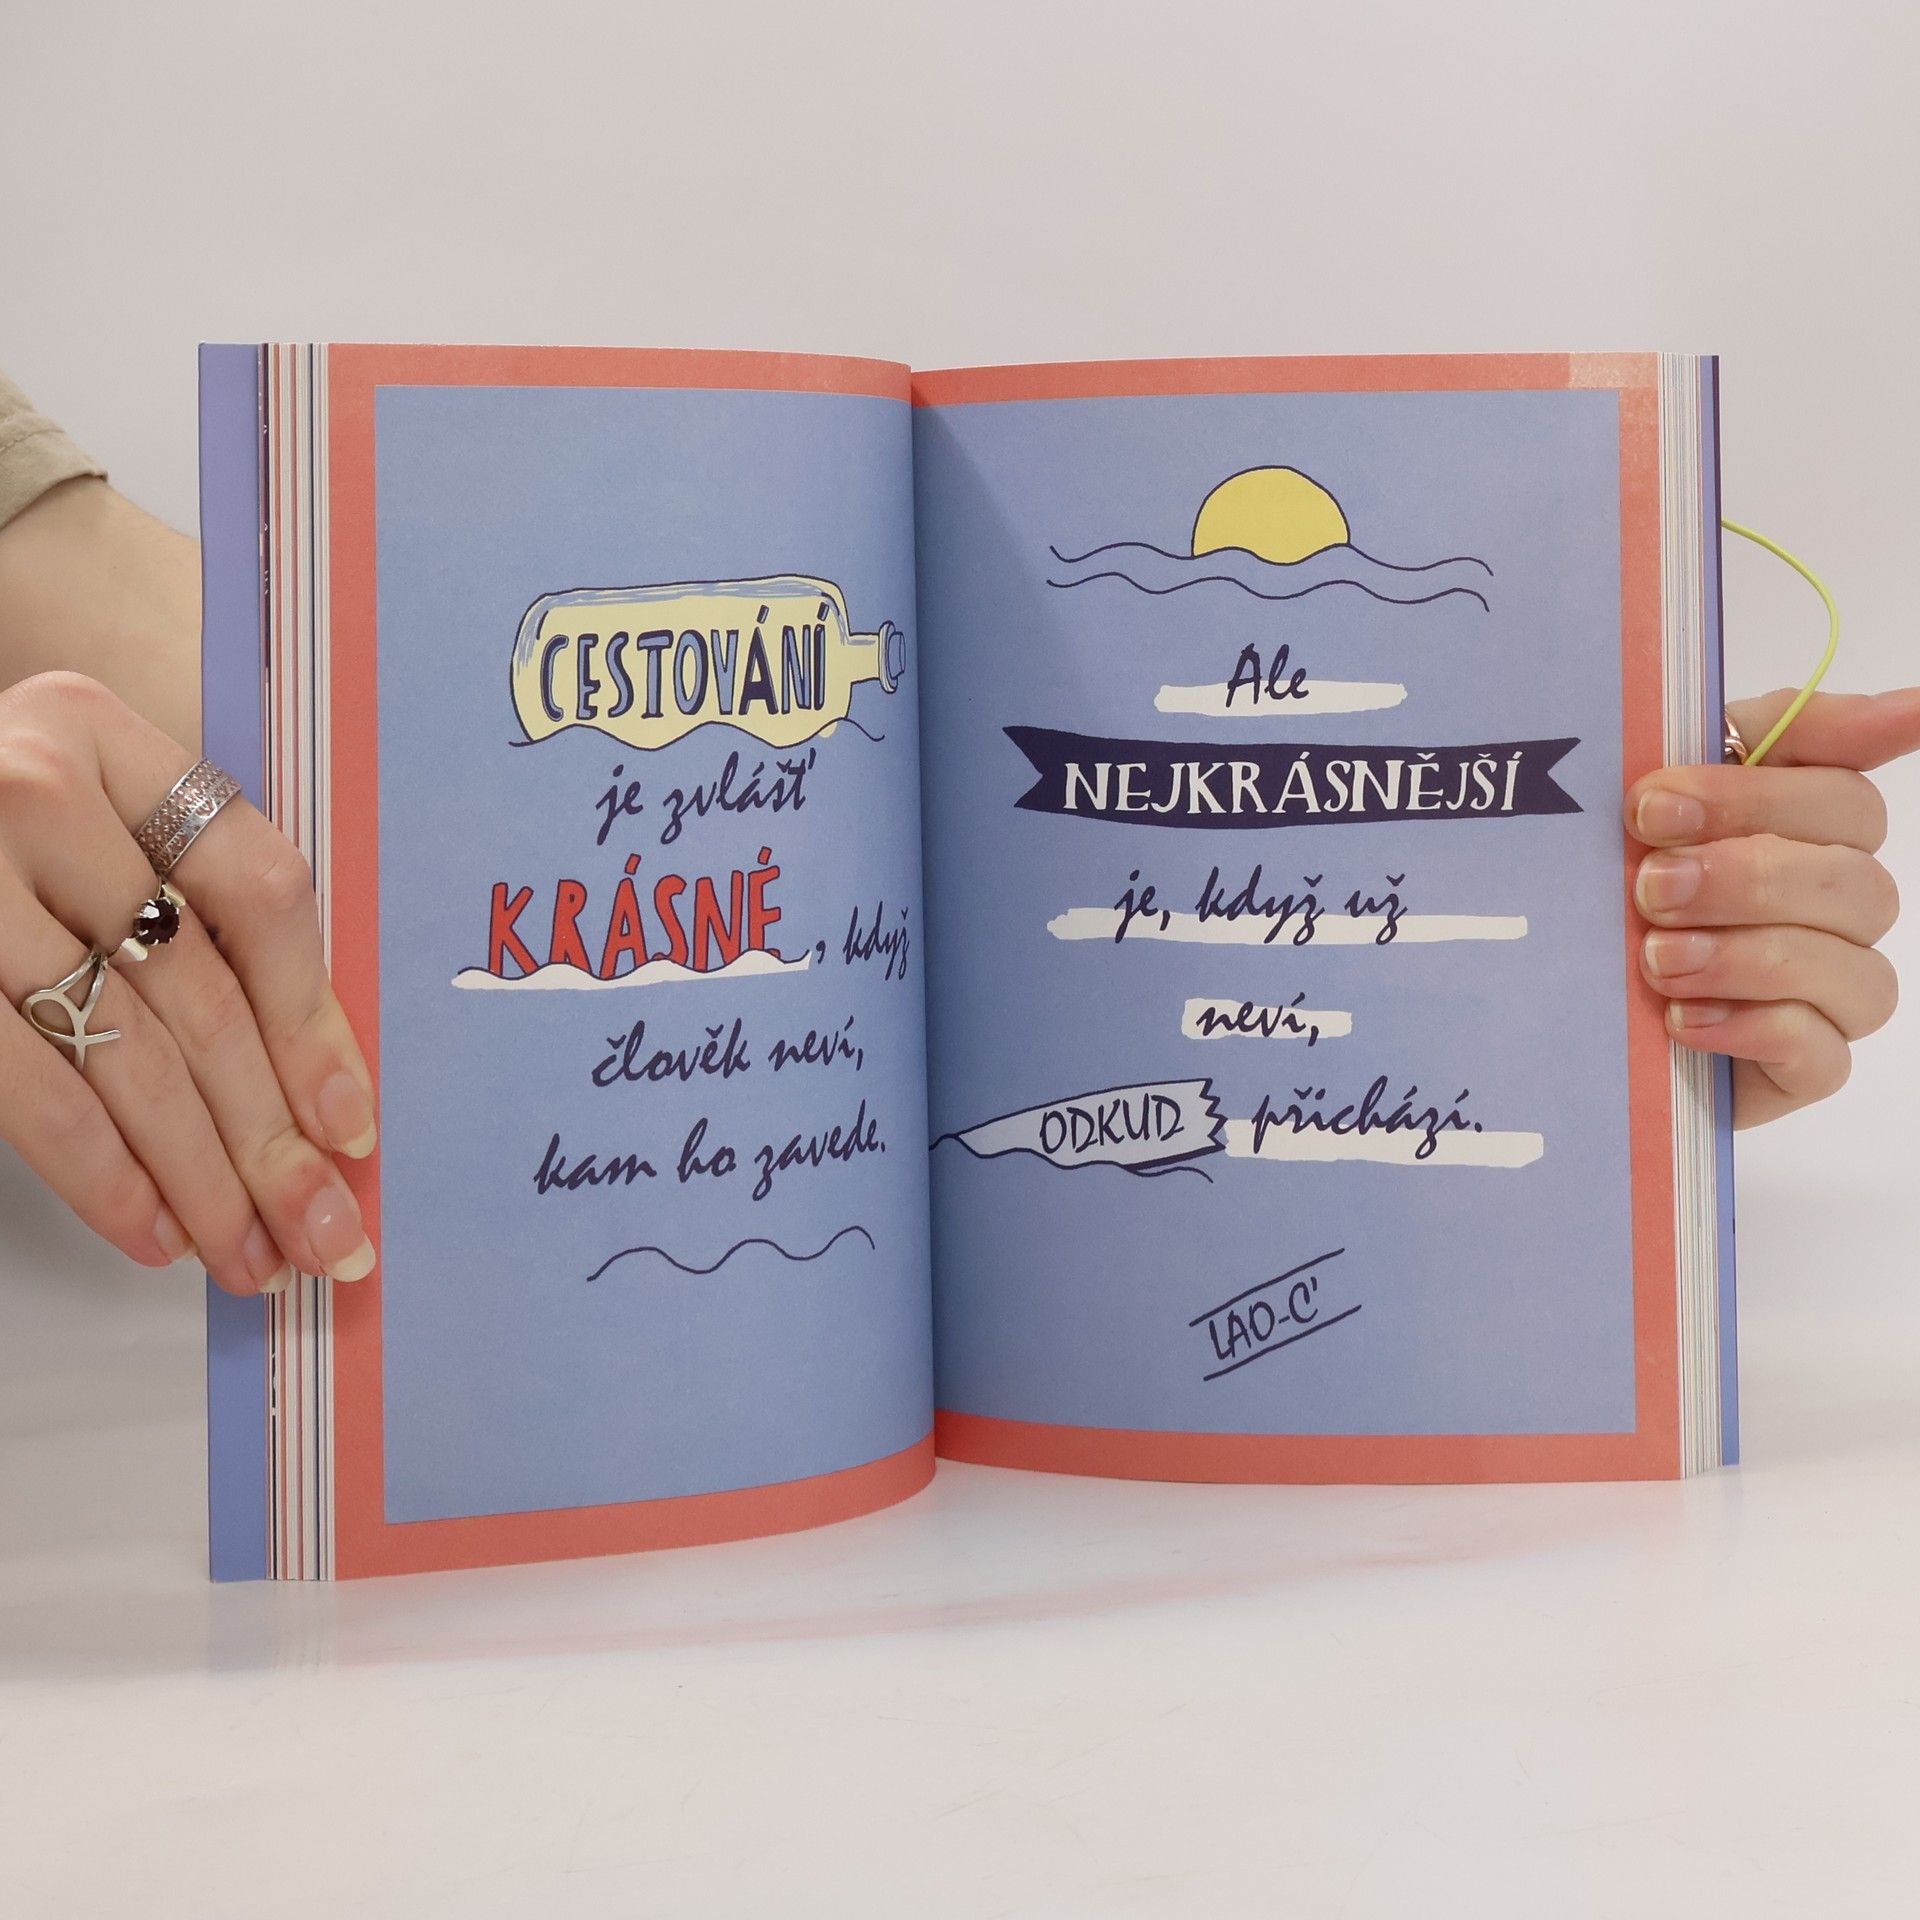 CESTOVÁNÍ
je zvlášť
KRÁSNÉ, když
člověk neví,
kam ho zavede.
Ale
NEJKRÁSNĚJŠÍ
je, když už
neví,
ODKUD přichází.
LAO-C'